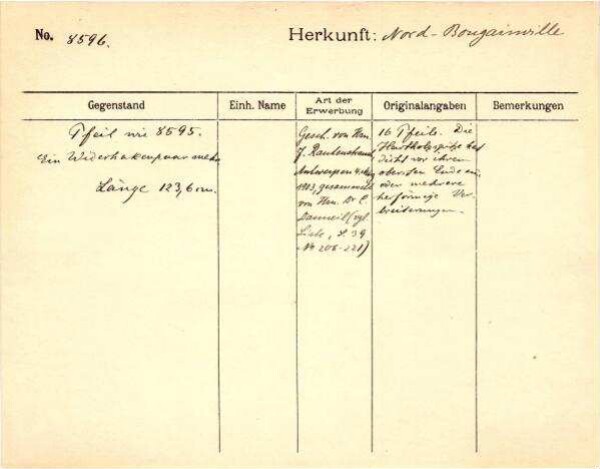 No. 8596.
Herkunft: Nord-Bougainville
Gegenstand
Einh. Name
Art der Erwerbung
Originalangaben
Bemerkungen
Pfeil wie 8595.
Ein Widerhakenpaar mehr
Länge 123,6 cm.
Gesch. von Hrn.
J. Rautenstrauch,
Antwerpen
1903, gesammelt
von Hrn. Dr. C.
Danneil (vgl.
Liste, S. 39
No 206-221)
16 Pfeile. Die
Hartholzspitze hat
dicht vor ihrem
obersten Ende ein
oder mehrere
Verbreiterungen.